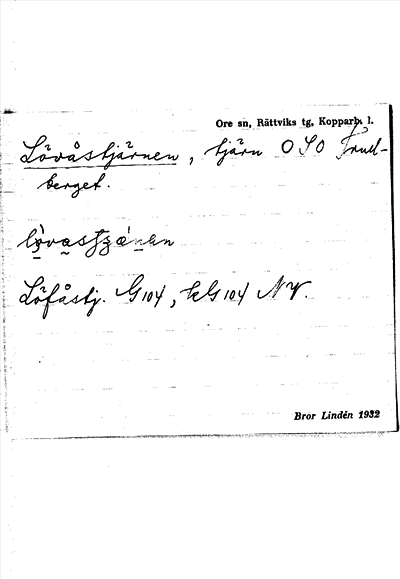 Ore sn, Rättviks tg, Kopparb. l.
Lövåstjärnen, tjärn OSO
berget.
Löfåstj. G104, kG104 NV.
Bror Lindén 1932